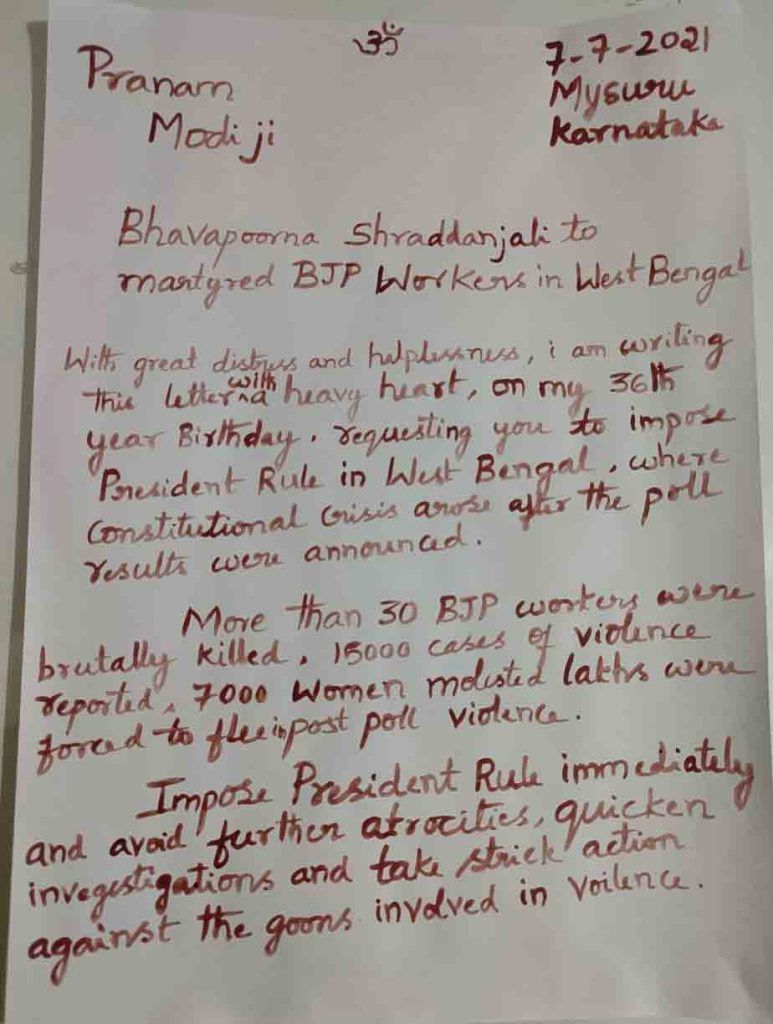 ॐ
7-7-2021
Pranam
Mysuru
Modi ji
Karnataka
Bhavapoorna Shraddanjali to
martyred BJP Workers in West Bengal
With great distress and helplessness, i am writing
this letter with a heavy heart, on my 36th
year Birthday. requesting you to impose
President Rule in West Bengal, where
Constitutional Crisis arose after the poll
results were announced.
More than 30 BJP workers were
brutally killed, 15000 cases of violence
reported, 7000 Women molested lakhs were
forced to flee in post poll violence.
Impose President Rule immediately
and avoid further atrocities, quicken
invegestigations and take strick action
against the goons involved in voilence.